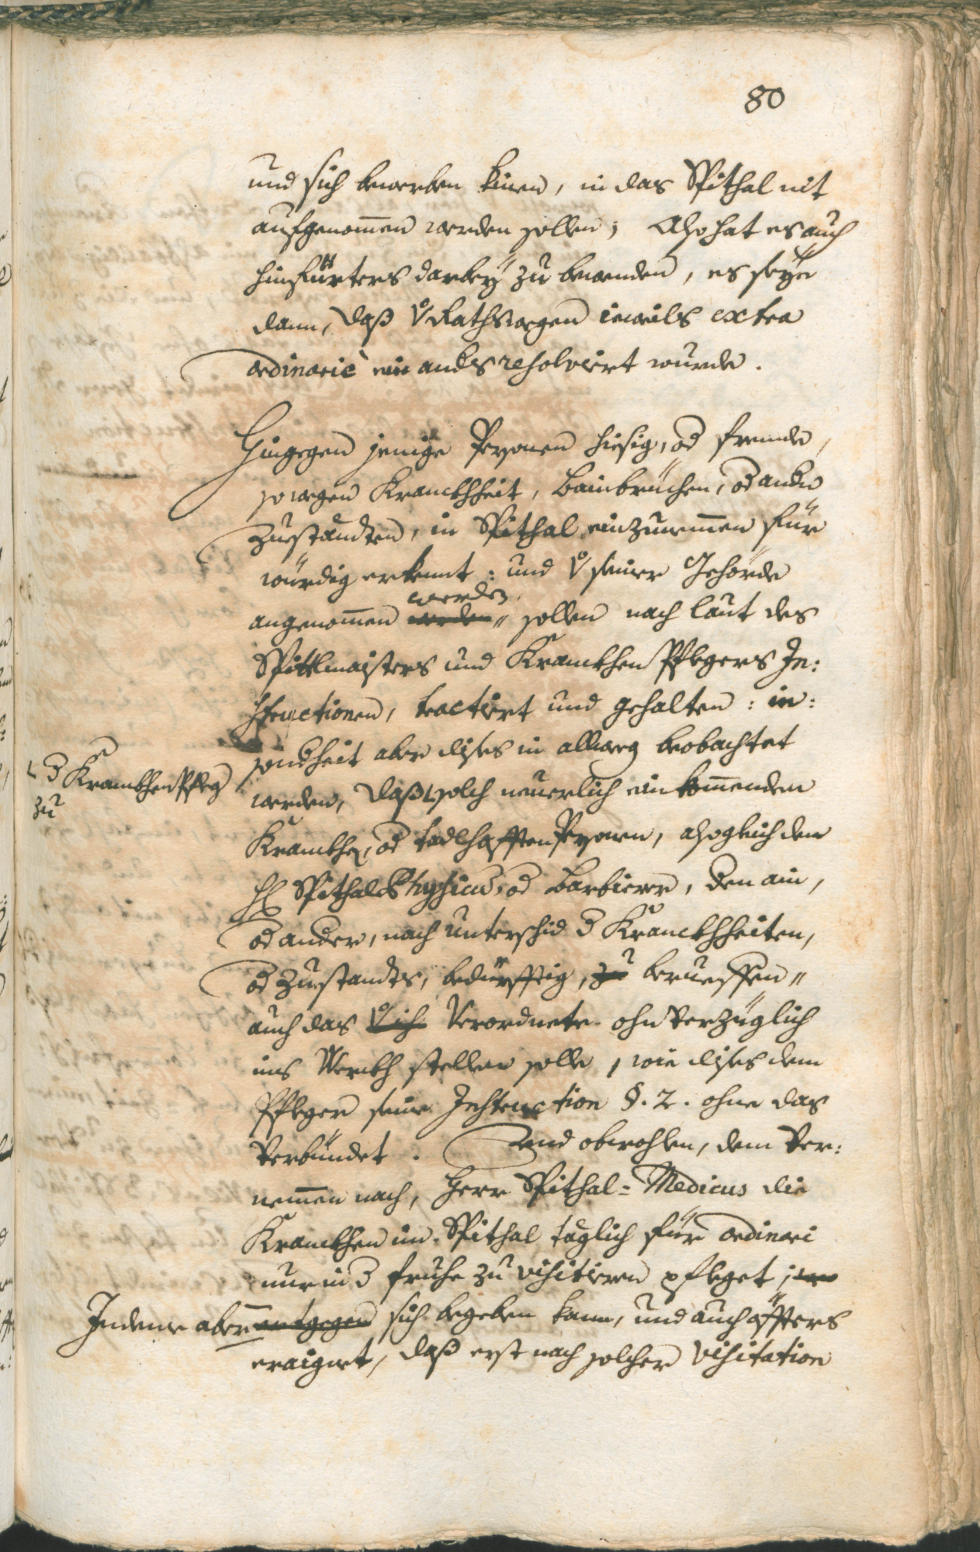 80
und sich bewerben kinen, in das Spithal nit
aufgenom̄en werden sollen; Also hat es auch
hinfürters darbey zu bewenden, es seye
dann, daß v Rathswegen iewails extra
ordinariè ein anders resolviert wurde.
Hingegen jenige Persohnen hiesig, od frembde,
so wegen Kranckhheit, Bainbrüchen, od andern
Zueständten, in Spithal einzunem̄en für
würdig erkennt: und v seiner Gehörde
werden
angenom̄en werden sollen nach laut des
Spittlmaisters und Kranckhen Pflegers In:
structionen, tractiert und gehalten: in:
sondheit aber dises in allweg beobachtet
d Kranckhen Pfleg
zu
werden, daß solch neuerlich ein kom̄enden
Kranckhen, od Persohnen, alsogleich dem
H Spithal Physicus, od Barbierer, dem ain,
od ander, nach unterschid d Kranckhheiten,
od Zuestandts, bedürfftig, zu berueffen
auch das Verordnete ohnverzüglich
ins Werckh stellen solle, wie dises dem
Pfleger seine Instruction §. 2. ohne das
Verbündet. Und obwohlen, dem Ver:
nem̄en nach, Herr Spithal-Medicus die
Kranckhen im Spithal täglich für ordinari
nur in d fruhe zu visitieren pfleget;
Indeme aber entgegen sich begeben kann, und auch öffters
eraignet, daß erst nach solcher visitation